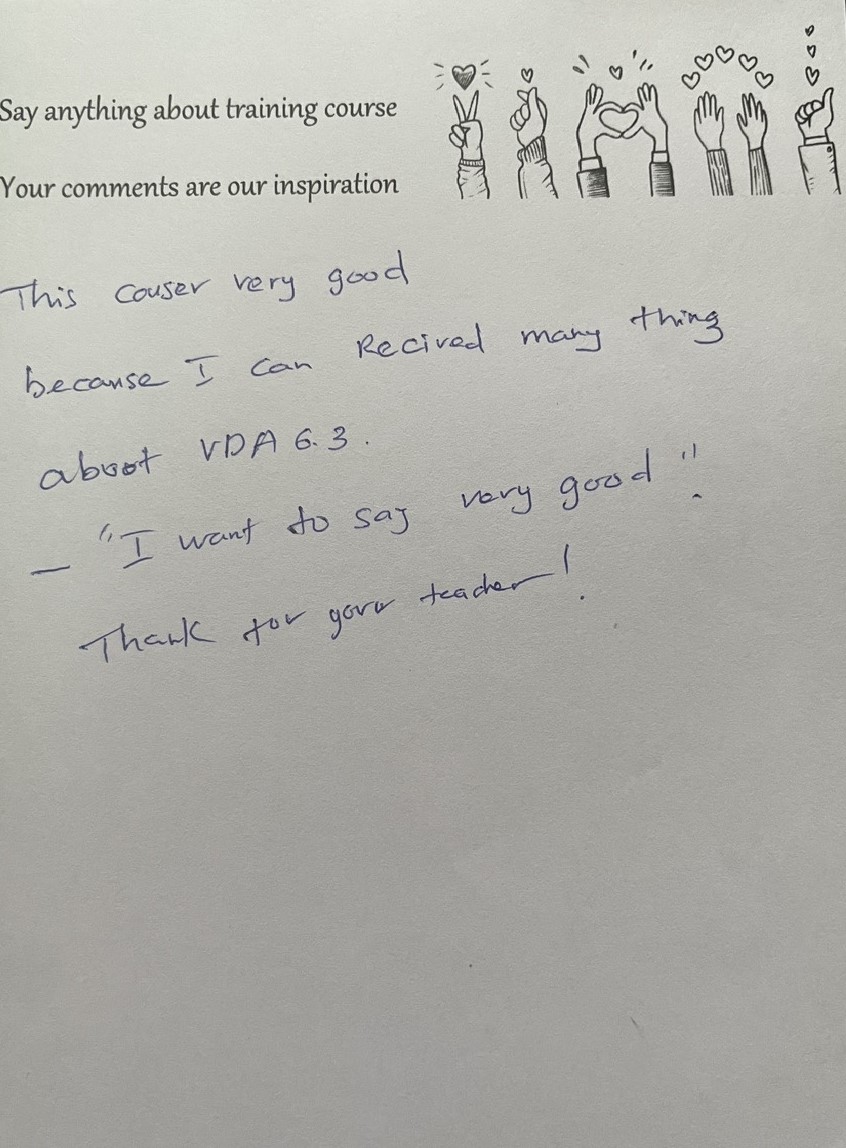 Say anything about training course
Your comments are our inspiration
This couser very good
because I can Recived many thing
aboot VDA 6.3.
— "I want to say very good".
Thank for your teacher!